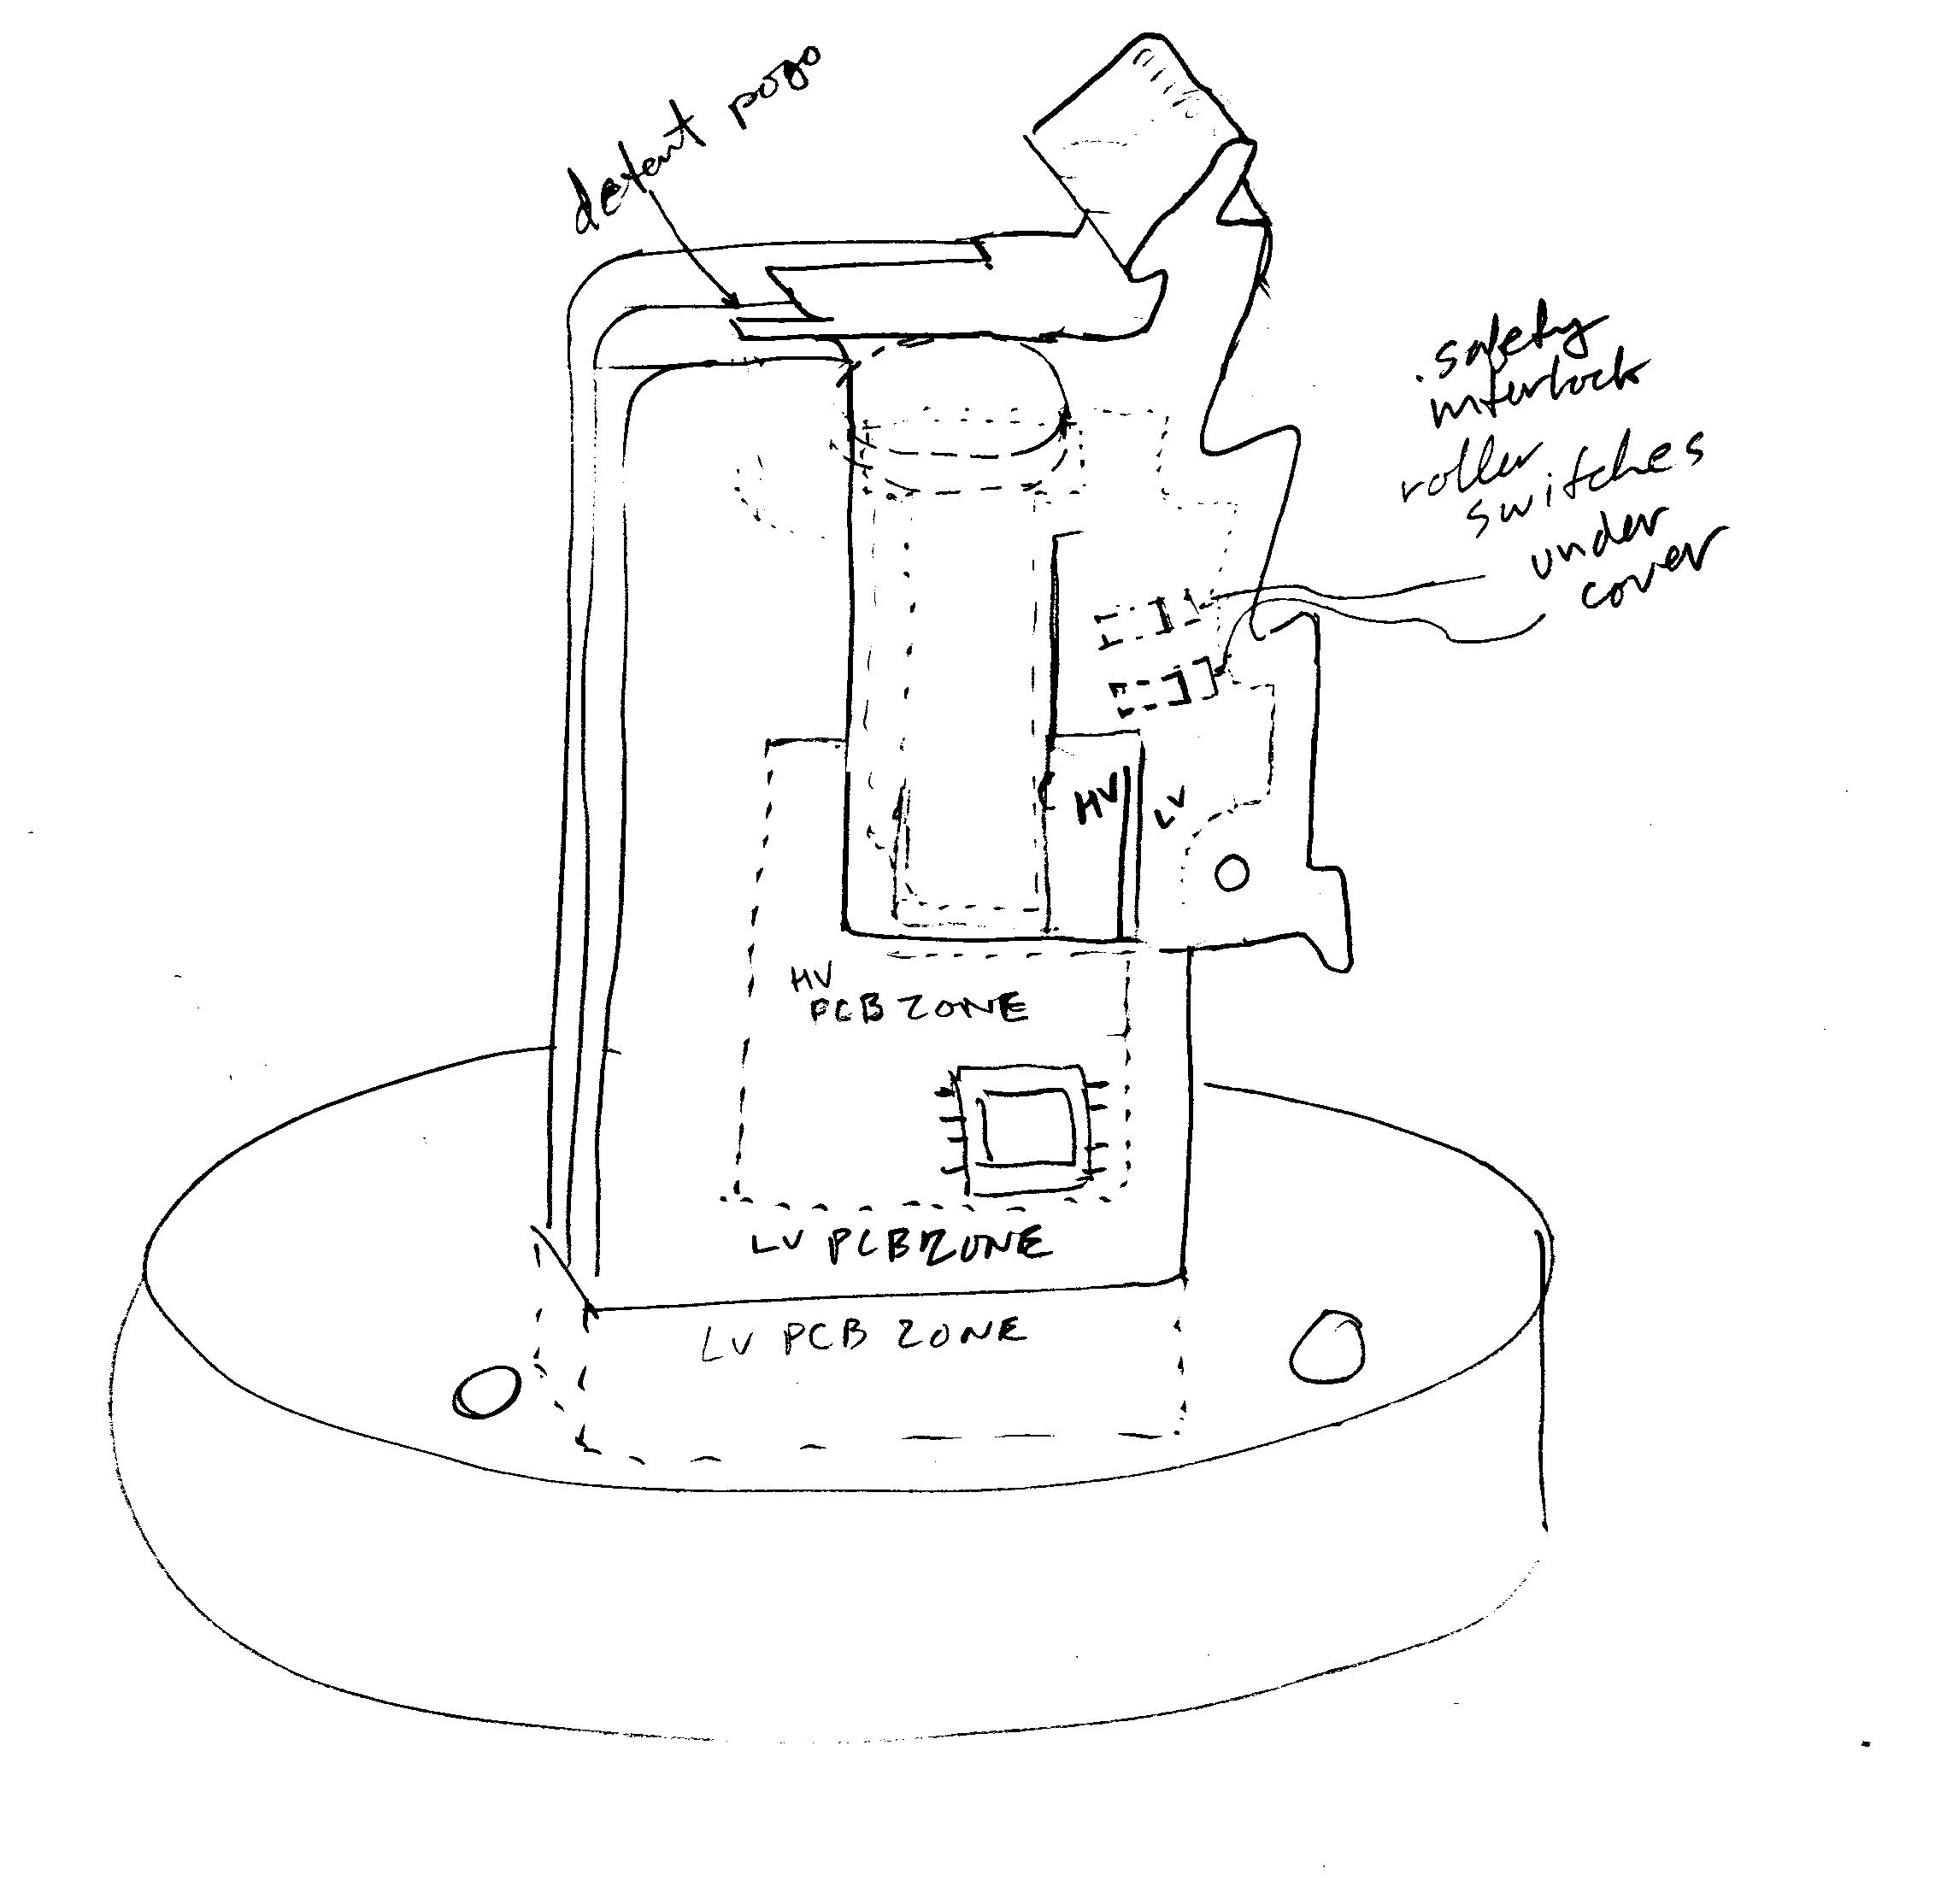 detent pogo
.safety
interlock
roller
switches
under
cover
HV
LV
HV
PCB ZONE
LV PCB ZONE
LV PCB ZONE